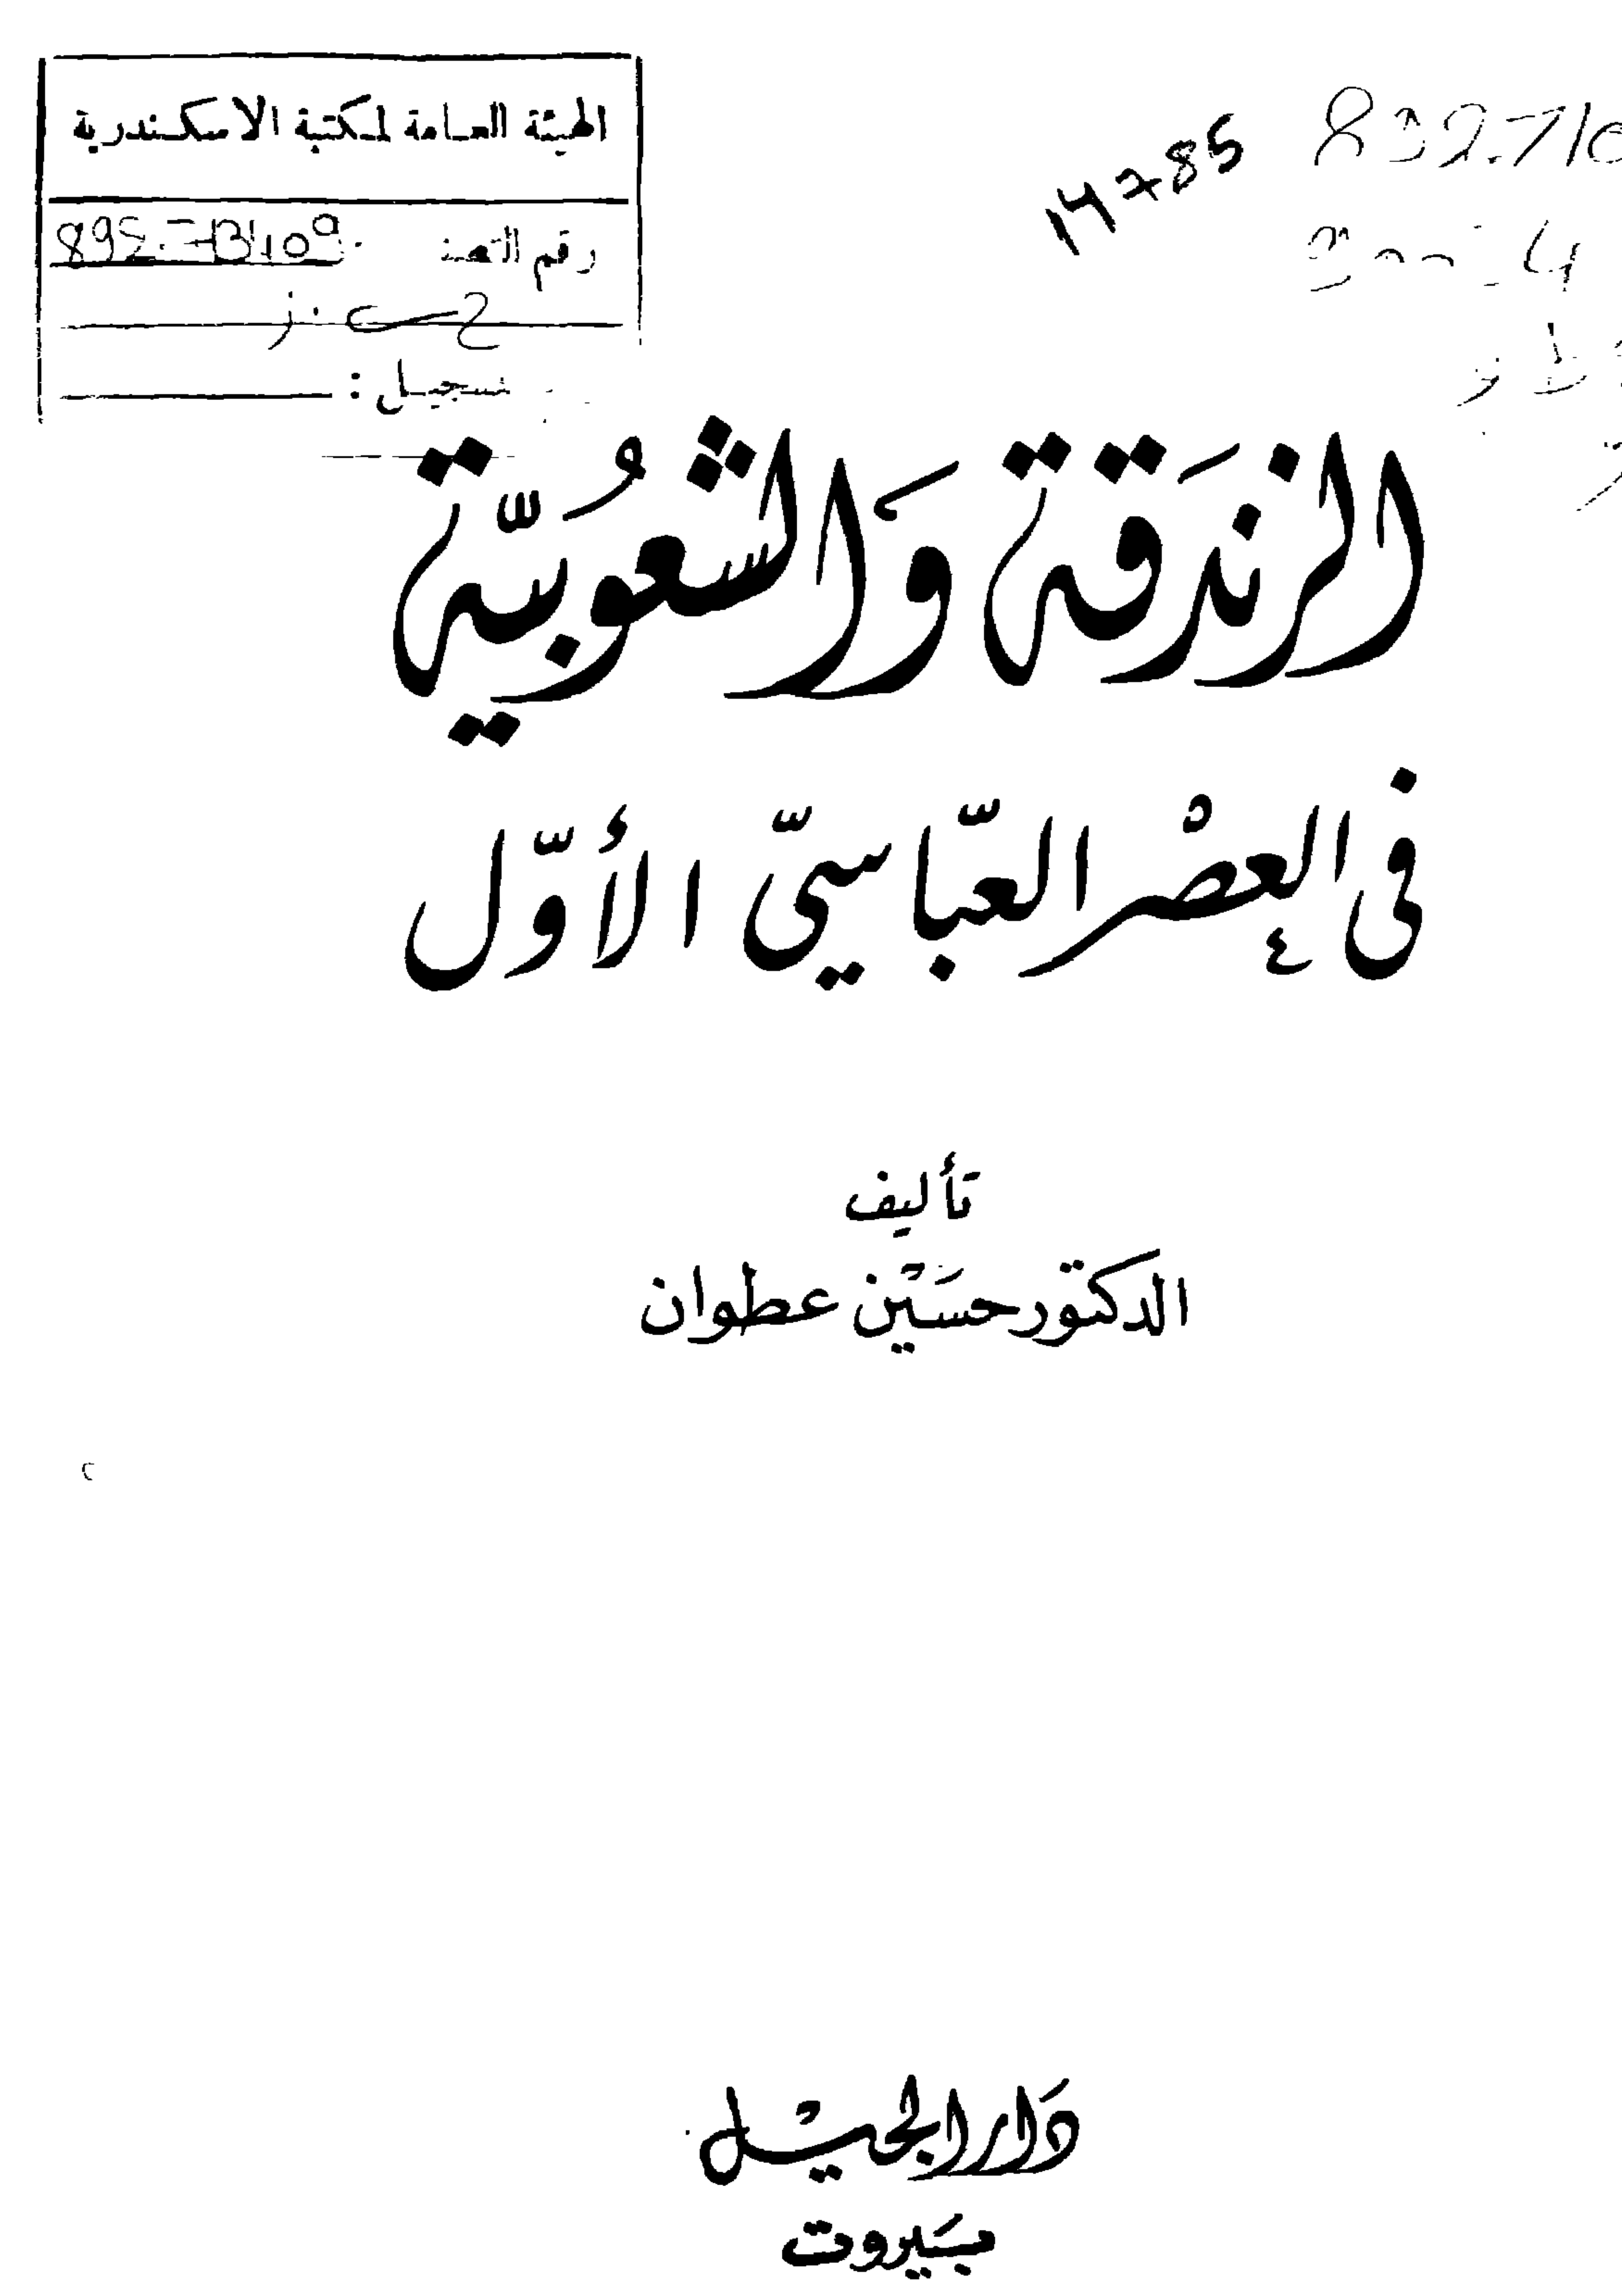 الهيئة العامة لمكتبة الاسكندرية
رقم
تسجيل :
14785
الزندَقة وَالشعُوبيّة
في العصْر العبّاسيّ الأوّل
تأليف
الدكتور حسَيْن عطوان
دَار الجيْل
بَيروت